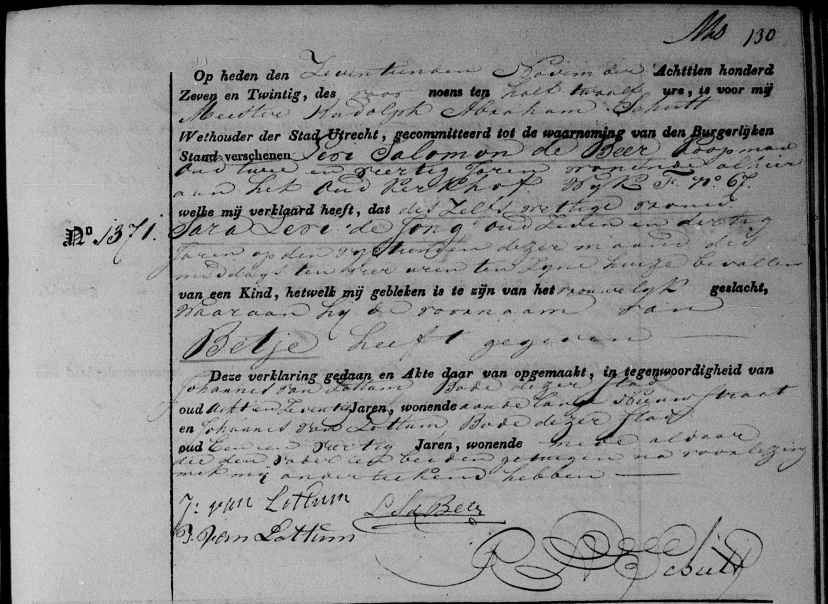 130
Op heden den Zeventienden November Achttien honderd
Zeven en Twintig, des voor noens ten half twaalf ure, is voor mij
Meester Rudolph Abraham Schutt
Wethouder der Stad Utrecht, gecommitteerd tot de waarneming van den Burgerlijken
Stand verschenen Levi Salomon de Beer Koopman
oud twee en veertig Jaren wonende alhier
aan het Oud Kerkhof Wyk F. No 67.
welke mij verklaard heeft, dat des Zelfs wettige vrouw
No 1371. Sara Levi de Jong oud Zeven en dertig
Jaren op den vyftienden dezer maand des
middags ten vier uren ten zyne huize bevallen
van een Kind, hetwelk mij gebleken is te zijn van het vrouwelyk geslacht,
waaraan hy de voornaam van
Betje heeft gegeven
Deze verklaring gedaan en Akte daar van opgemaakt, in tegenwoordigheid van
Johannes van Lottum Bode dezer Stad
oud Acht en Zeventig Jaren, wonende aan de lange Nieuwstraat
en Johannes van Lottum Bode dezer Stad
oud Een en veertig Jaren, wonende mede aldaar
die den vader en beiden getuigen na voorlezing
met mij onderteekend hebben
J: van Lottum L S d Beer
J. van Lottum
R A Schutt